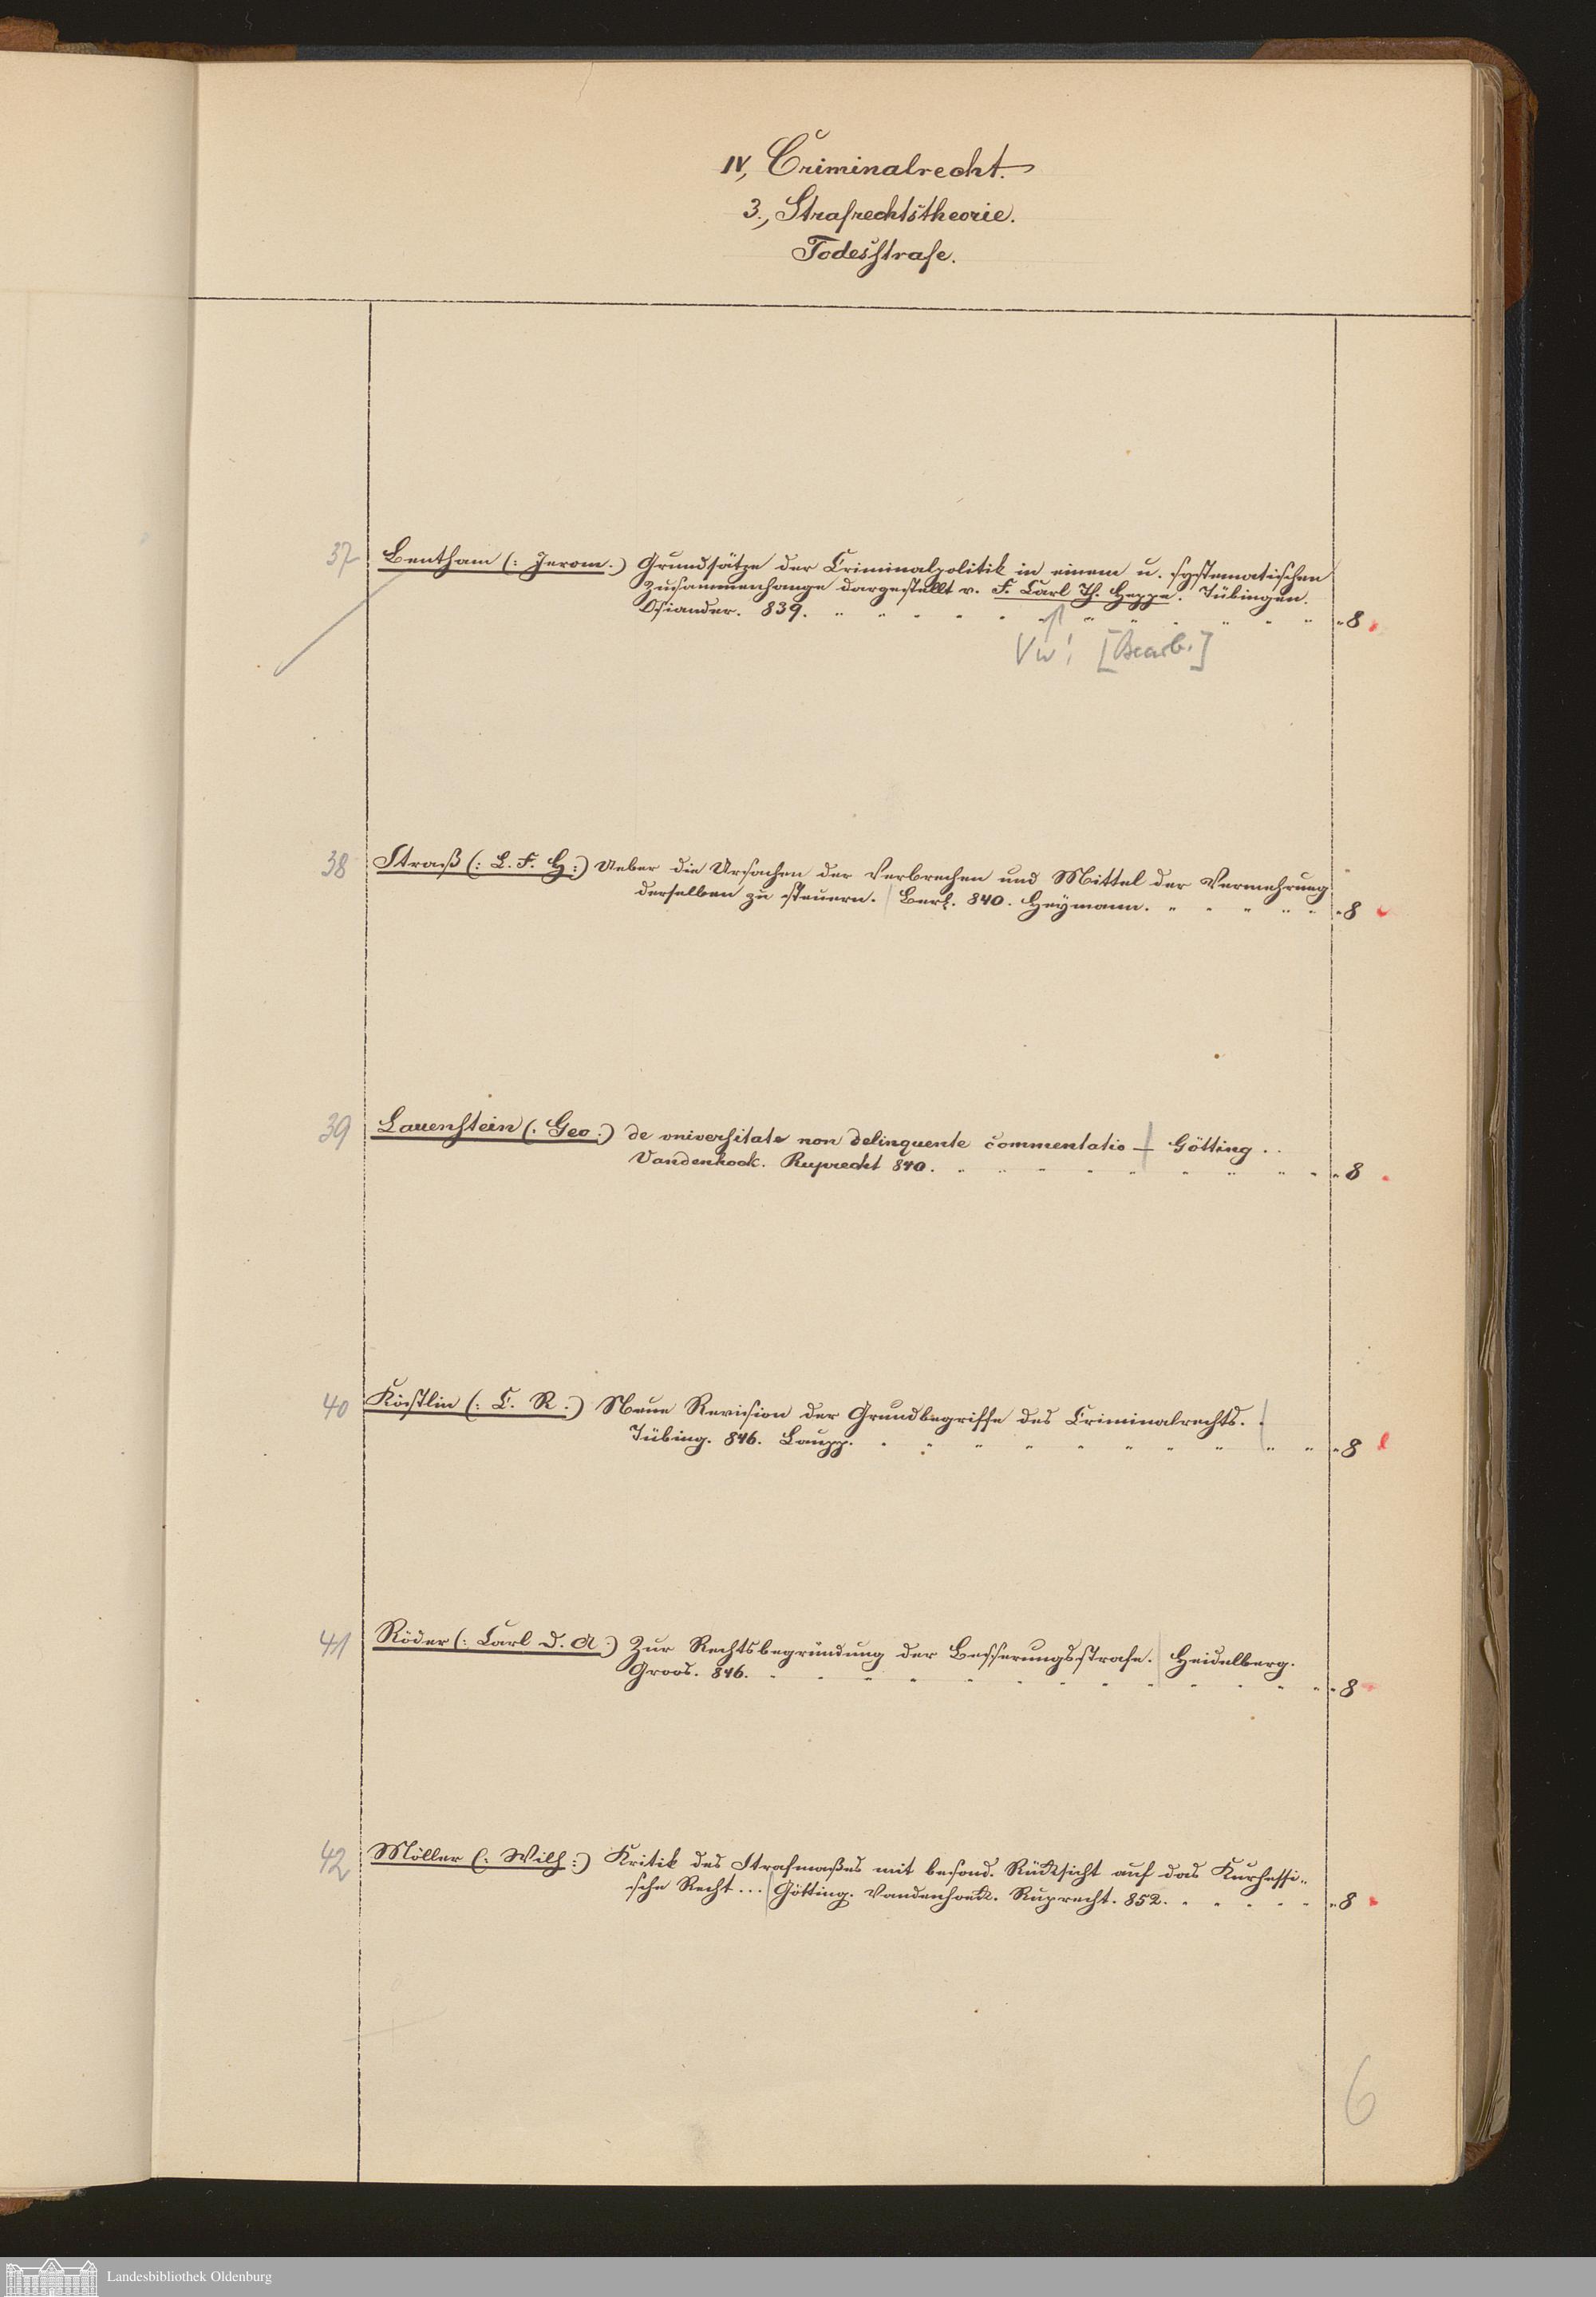 IV, Criminalrecht.
3., Strafrechtstheorie.
Todesstrafe.
37 Bentham (: Jerom.) Grundsätze der Criminalpolitik in einem u. systematischen
Zusammenhange dargestellt v. F. Carl Th. Heppe. Tübingen.
Osiander. 839. " 8
Vw! [Bearb.]
38 Straß (: L. F. H:) Ueber die Ursachen der Verbrechen und Mittel der Vermehrung
derselben zu steuern. Berl. 840. Heymann. " 8
39 Lauenstein (. Geo:) de universitate non delinquente commentatio — Götting..
Vandenhoek. Ruprecht 840. " 8
40 Köstlin (: C. R:) Neue Revision der Grundbegriffe des Criminalrechts.
Tübing. 846. Laupp. " 8
41 Röder (: Carl D. A:) Zur Rechtsbegründung der Besserungsstrafe. Heidelberg.
Groos. 846. " 8
42 Möller (: Wilh:) Kritik des Strafmaßes mit besond. Rücksicht auf das Kurhessi-
sche Recht... Götting. Vandenhoeck. Ruprecht. 852. " 8
6
Landesbibliothek Oldenburg